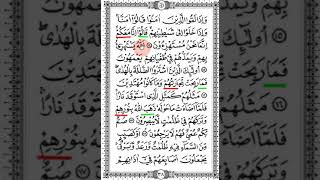 وَإِذَا لَقُوا الَّذِينَ اٰمَنُوا قَالُوٓا اٰمَنَّا
وَإِذَا خَلَوْا اِلٰى شَيٰطِيْنِهِمْ قَالُوٓا اِنَّا مَعَكُمْ
اِنَّمَا نَحْنُ مُسْتَهْزِءُوْنَ ۝ اَللّٰهُ يَسْتَهْزِئُ
بِهِمْ وَيَمُدُّهُمْ فِيْ طُغْيَانِهِمْ يَعْمَهُوْنَ ۝
اُولٰٓئِكَ الَّذِيْنَ اشْتَرَوُا الضَّلٰلَةَ بِالْهُدٰى
فَمَا رَبِحَتْ تِّجَارَتُهُمْ وَمَا كَانُوْا مُهْتَدِيْنَ ۝
مَثَلُهُمْ كَمَثَلِ الَّذِي اسْتَوْقَدَ نَارًا
فَلَمَّآ اَضَآءَتْ مَا حَوْلَهٗ ذَهَبَ اللّٰهُ بِنُوْرِهِمْ
وَتَرَكَهُمْ فِيْ ظُلُمٰتٍ لَّا يُبْصِرُوْنَ ۝ صُمٌّۢ
بُكْمٌ عُمْيٌ فَهُمْ لَا يَرْجِعُوْنَ ۝ اَوْ كَصَيِّبٍ
مِّنَ السَّمَآءِ فِيْهِ ظُلُمٰتٌ وَّرَعْدٌ وَّبَرْقٌ
يَجْعَلُوْنَ اَصَابِعَهُمْ فِيْٓ اٰذَانِهِمْ